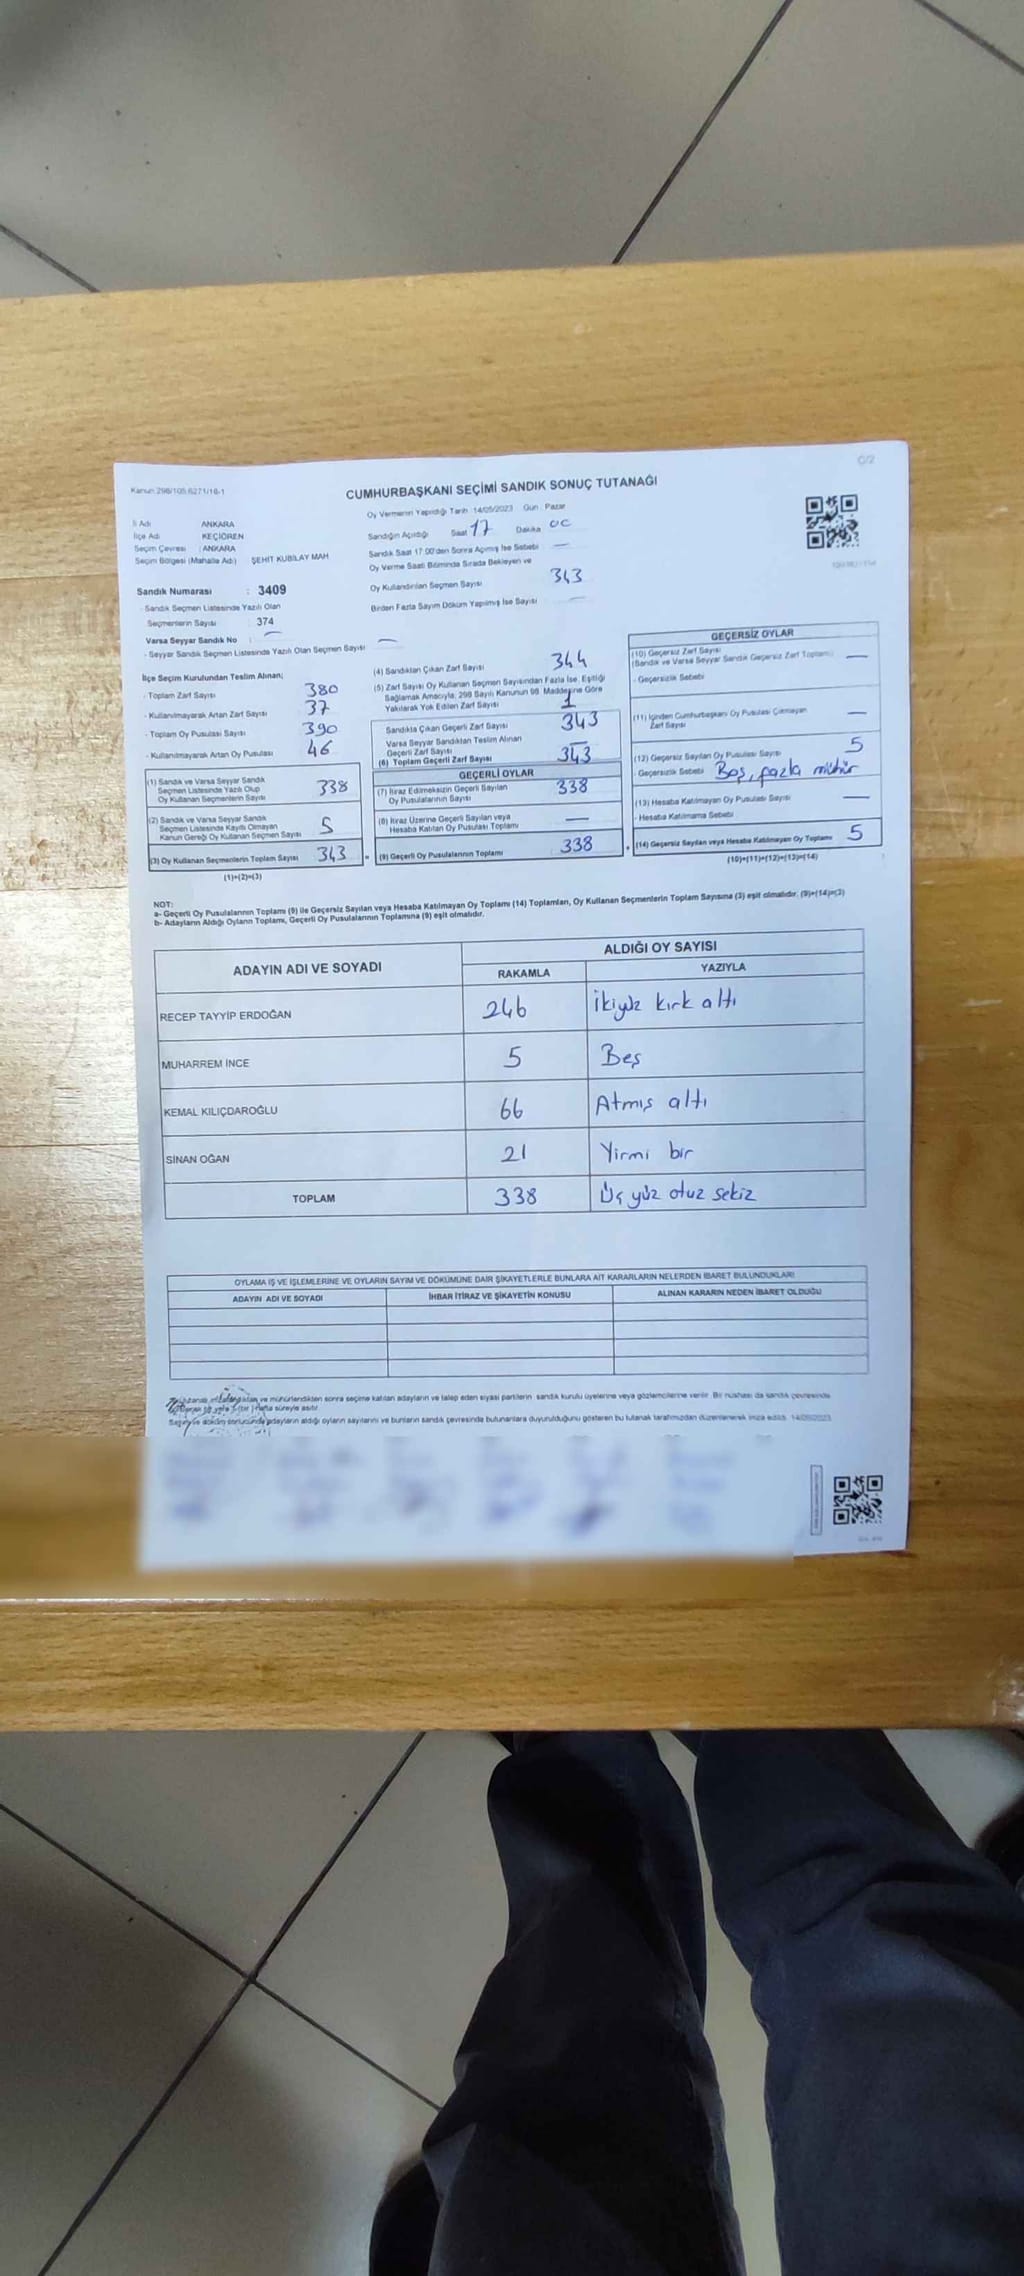 C/2
Kanun 298/105,6271/16-1
CUMHURBAŞKANI SEÇİMİ SANDIK SONUÇ TUTANAĞI
İl Adı : ANKARA
İlçe Adı : KEÇİÖREN
Seçim Çevresi : ANKARA
Seçim Bölgesi (Mahalle Adı) : ŞEHİT KUBİLAY MAH
Oy Vermenin Yapıldığı Tarih :14/05/2023 Gün : Pazar
Sandığın Açıldığı Saat 17 Dakika 00
Sandık Saat 17:00'den Sonra Açılmış İse Sebebi —
Oy Verme Saati Bitiminde Sırada Bekleyen ve
Oy Kullandırılan Seçmen Sayısı 343
Birden Fazla Sayım Döküm Yapılmış İse Sayısı —
Sandık Numarası : 3409
- Sandık Seçmen Listesinde Yazılı Olan
Seçmenlerin Sayısı : 374
Varsa Seyyar Sandık No : —
- Seyyar Sandık Seçmen Listesinde Yazılı Olan Seçmen Sayısı —
İlçe Seçim Kurulundan Teslim Alınan;
- Toplam Zarf Sayısı 380
- Kullanılmayarak Artan Zarf Sayısı 37
- Toplam Oy Pusulası Sayısı 390
- Kullanılmayarak Artan Oy Pusulası 46
(1) Sandık ve Varsa Seyyar Sandık
Seçmen Listesinde Yazılı Olup
Oy Kullanan Seçmenlerin Sayısı 338
(2) Sandık ve Varsa Seyyar Sandık
Seçmen Listesinde Kayıtlı Olmayan
Kanun Gereği Oy Kullanan Seçmen Sayısı 5
(3) Oy Kullanan Seçmenlerin Toplam Sayısı 343
(1)+(2)=(3)
(4) Sandıktan Çıkan Zarf Sayısı 344
(5) Zarf Sayısı Oy Kullanan Seçmen Sayısından Fazla İse, Eşitliği
Sağlamak Amacıyla, 298 Sayılı Kanunun 98. Maddesine Göre
Yakılarak Yok Edilen Zarf Sayısı 1
Sandıkta Çıkan Geçerli Zarf Sayısı 343
Varsa Seyyar Sandıktan Teslim Alınan
Geçerli Zarf Sayısı —
(6) Toplam Geçerli Zarf Sayısı 343
GEÇERLİ OYLAR
(7) İtiraz Edilmeksizin Geçerli Sayılan
Oy Pusulalarının Sayısı 338
(8) İtiraz Üzerine Geçerli Sayılan veya
Hesaba Katılan Oy Pusulası Toplamı —
(9) Geçerli Oy Pusulalarının Toplamı 338
GEÇERSİZ OYLAR
(10) Geçersiz Zarf Sayısı
(Sandık ve Varsa Seyyar Sandık Geçersiz Zarf Toplamı) —
- Geçersizlik Sebebi
(11) İçinden Cumhurbaşkanı Oy Pusulası Çıkmayan
Zarf Sayısı —
(12) Geçersiz Sayılan Oy Pusulası Sayısı 5
- Geçersizlik Sebebi Boş, fazla mühür
(13) Hesaba Katılmayan Oy Pusulası Sayısı —
- Hesaba Katılmama Sebebi
(14) Geçersiz Sayılan veya Hesaba Katılmayan Oy Toplamı 5
(10)+(11)+(12)+(13)=(14)
NOT:
a- Geçerli Oy Pusulalarının Toplamı (9) ile Geçersiz Sayılan veya Hesaba Katılmayan Oy Toplamı (14) Toplamları, Oy Kullanan Seçmenlerin Toplam Sayısına (3) eşit olmalıdır. (9)+(14)=(3)
b- Adayların Aldığı Oyların Toplamı, Geçerli Oy Pusulalarının Toplamına (9) eşit olmalıdır.
ADAYIN ADI VE SOYADI ALDIĞI OY SAYISI
RAKAMLA YAZIYLA
RECEP TAYYİP ERDOĞAN 246 İkiyüz kırk altı
MUHARREM İNCE 5 Beş
KEMAL KILIÇDAROĞLU 66 Atmış altı
SİNAN OĞAN 21 Yirmi bir
TOPLAM 338 Üç yüz otuz sekiz
OYLAMA İŞ VE İŞLEMLERİNE VE OYLARIN SAYIM VE DÖKÜMÜNE DAİR ŞİKAYETLERLE BUNLARA AİT KARARLARIN NELERDEN İBARET BULUNDUKLARI
ADAYIN ADI VE SOYADI İHBAR İTİRAZ VE ŞİKAYETİN KONUSU ALINAN KARARIN NEDEN İBARET OLDUĞU
ve mühürlendikten sonra seçime katılan adayların ve talep eden siyasi partilerin sandık kurulu üyelerine veya gözlemcilerine verilir. Bir nüshası da sandık çevresinde
hafta süreyle asılır.
Sayım ve döküm sonucunda adayların aldığı oyların sayılarını ve bunların sandık çevresinde bulunanlara duyurulduğunu gösteren bu tutanak tarafımızdan düzenlenerek imza edildi. 14/05/2023